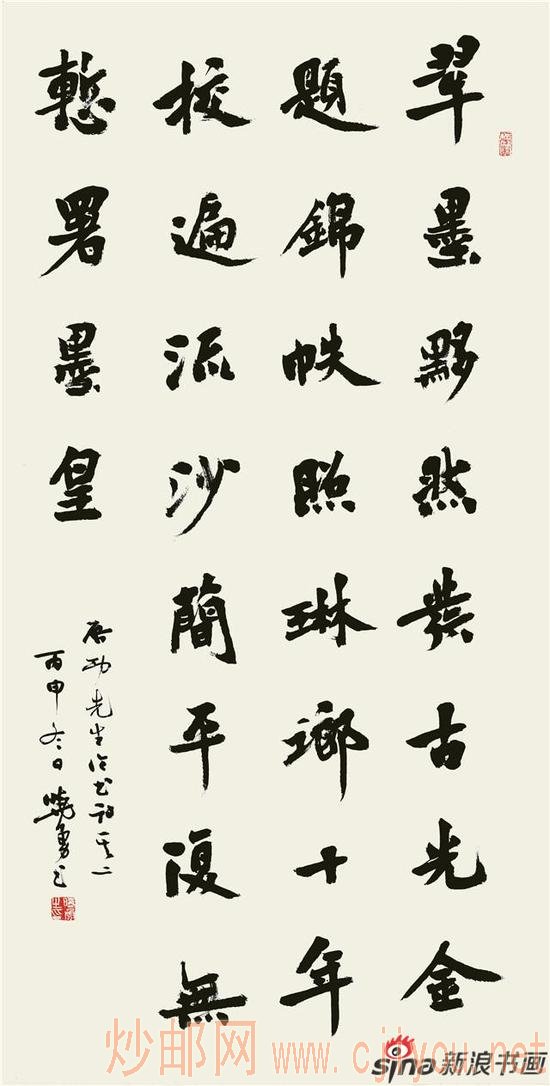 翠墨黟然發古光金
題錦帙照琳瑯十年
校遍流沙簡平復無
慙署墨皇
启功先生论书诗其二
丙申冬日曉勇
炒邮网
sina新浪书画